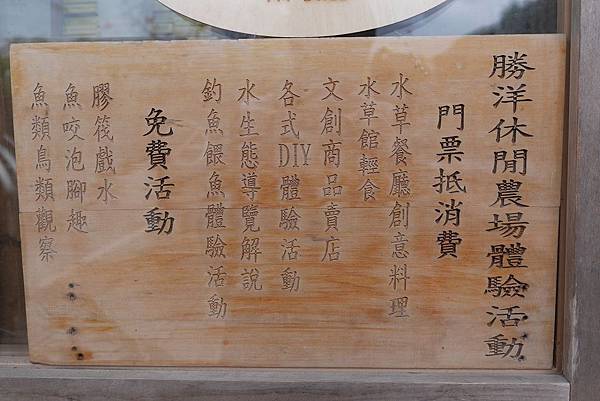 勝洋休閒農場體驗活動
門票抵消費
水草餐廳創意料理
水草館輕食
文創商品賣店
各式DIY體驗活動
水生態導覽解說
釣魚餵魚體驗活動
免費活動
膠筏戲水
魚咬泡腳趣
魚類鳥類觀察